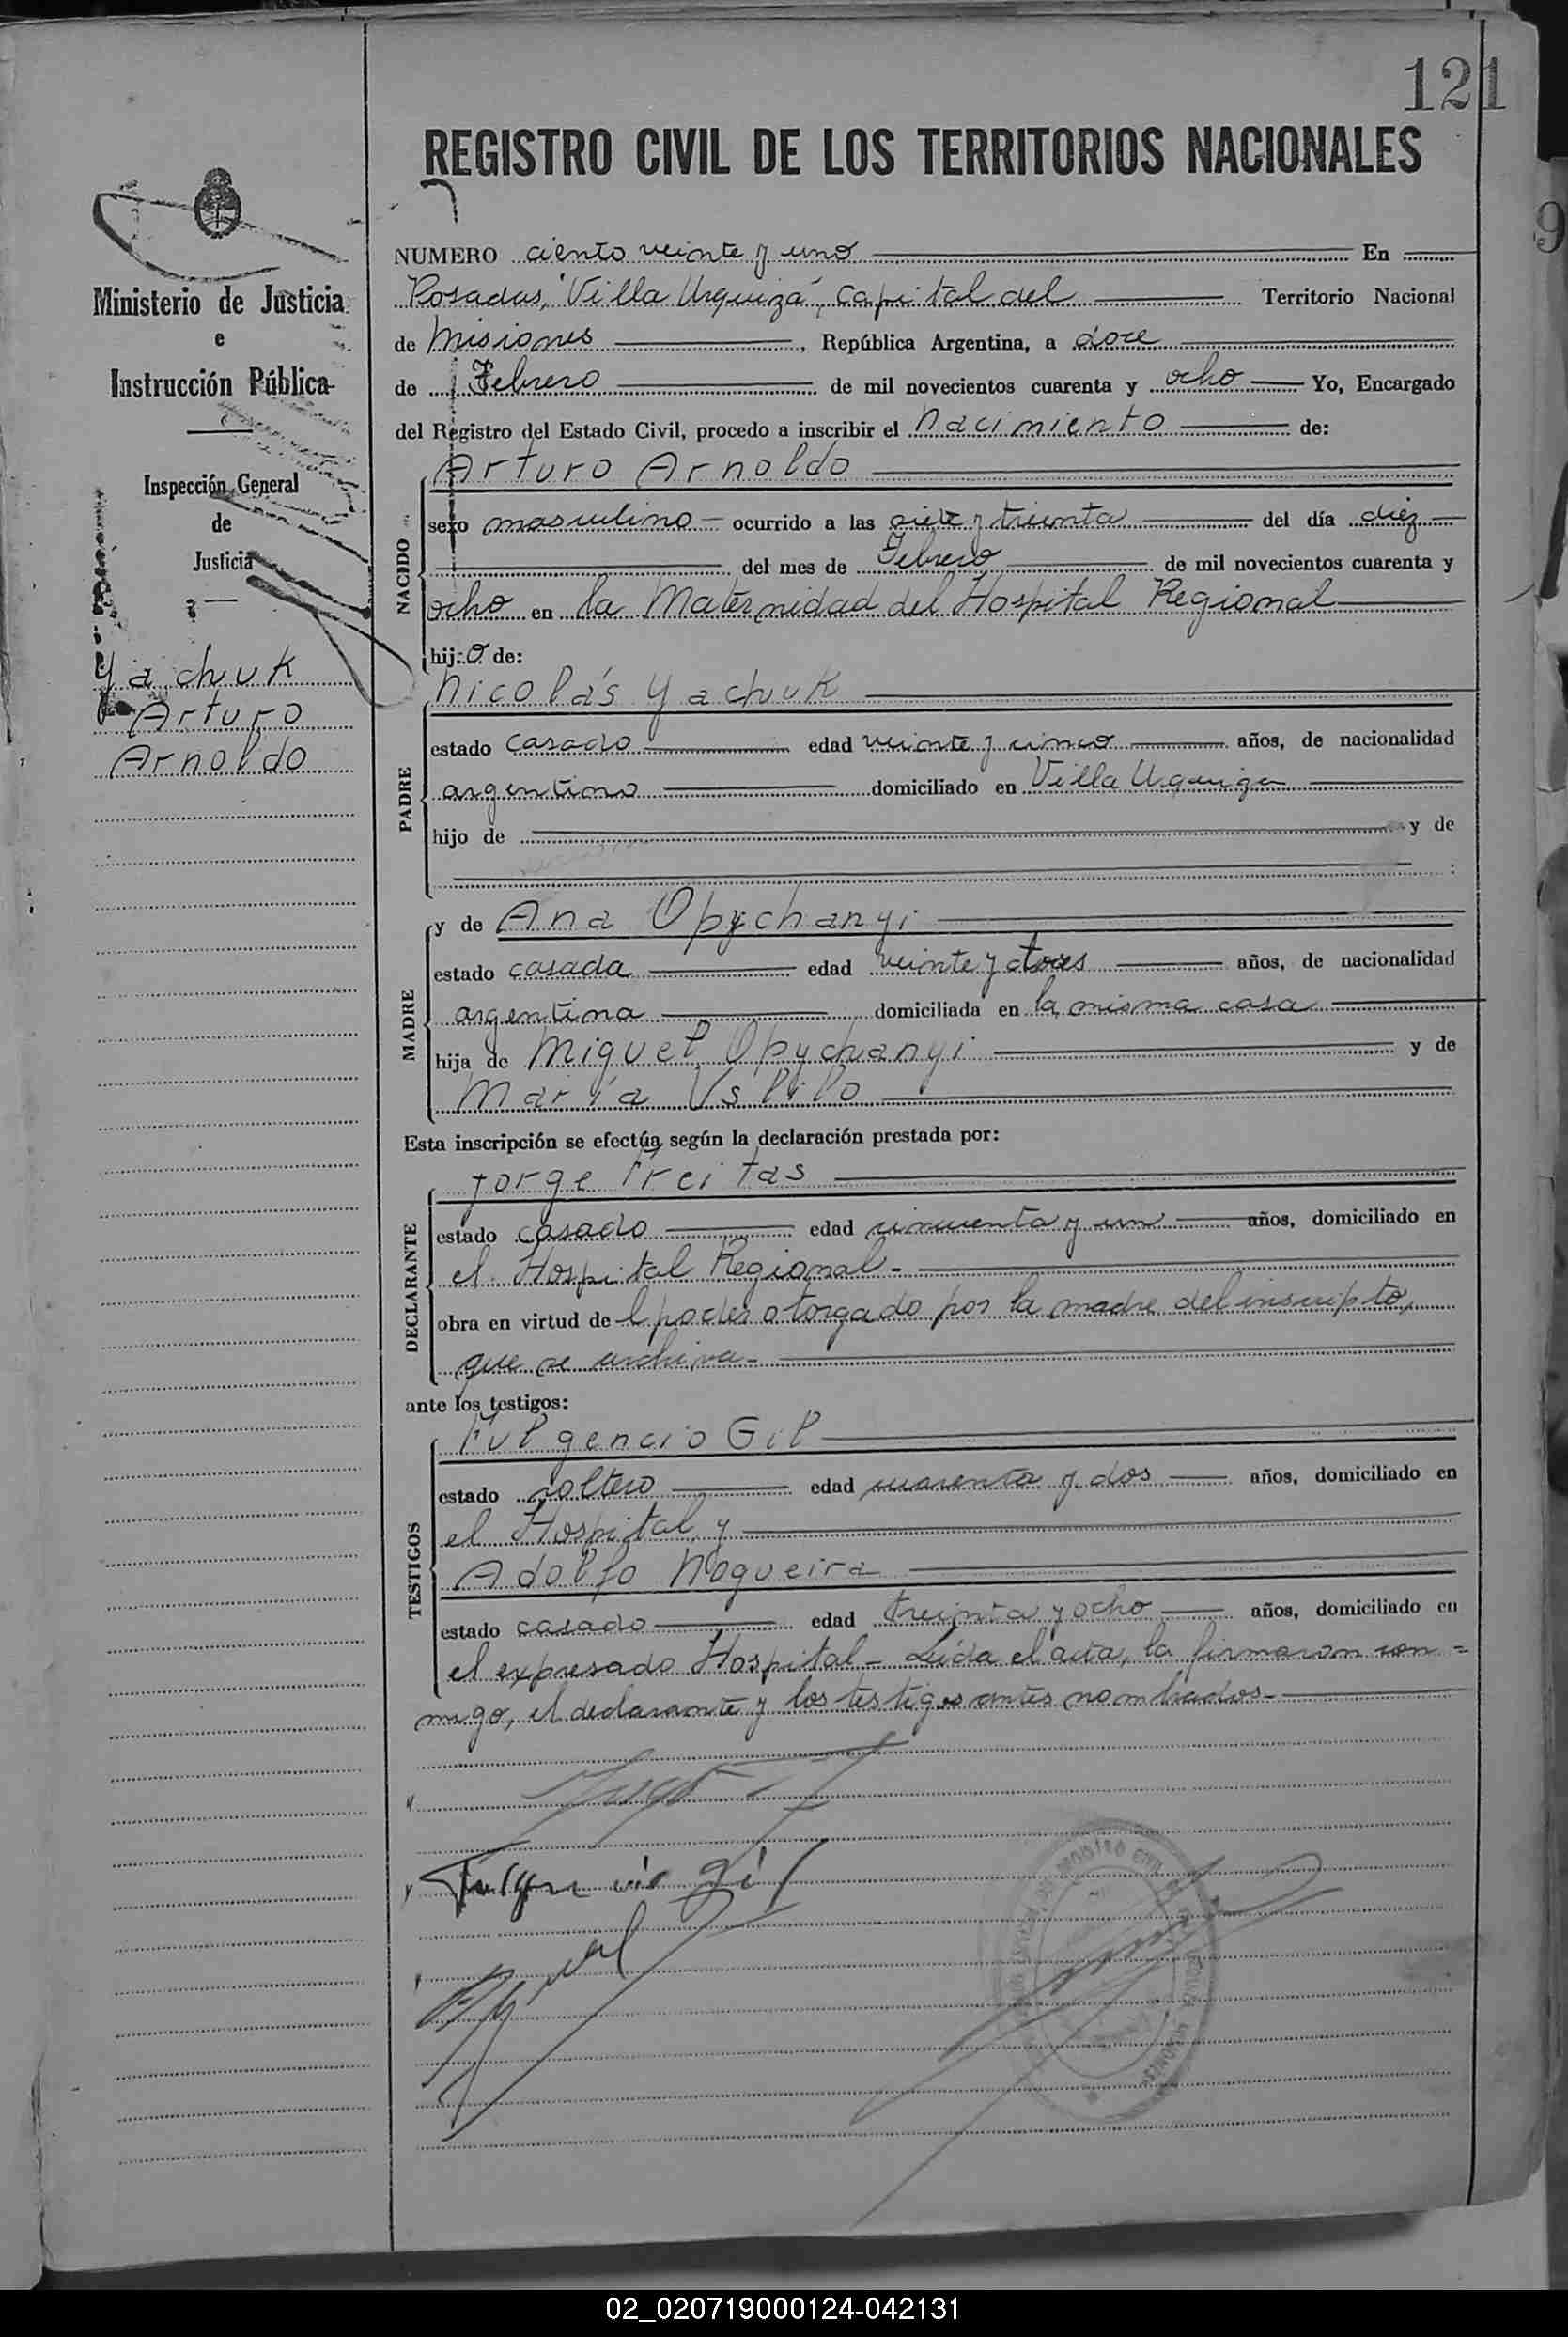 121
REGISTRO CIVIL DE LOS TERRITORIOS NACIONALES
Ministerio de Justicia
e
Instrucción Pública
Inspección General
de
Justicia
Yachuk
Arturo
Arnoldo
NUMERO ciento veinte y uno En
Posadas, "Villa Urquiza", capital del Territorio Nacional
de Misiones, República Argentina, a doce
de Febrero de mil novecientos cuarenta y ocho Yo, Encargado
del Registro del Estado Civil, procedo a inscribir el nacimiento de:
NACIDO
Arturo Arnoldo
sexo masculino ocurrido a las siete y treinta del día diez
del mes de Febrero de mil novecientos cuarenta y
ocho en la Maternidad del Hospital Regional
hijo de:
PADRE
Nicolás Yachuk
estado casado edad veinte y cinco años, de nacionalidad
argentino domiciliado en Villa Urquiza
hijo de y de
MADRE
y de Ana Opychanyi
estado casada edad veinte y años, de nacionalidad
argentina domiciliada en la misma casa
hija de Miguel Opychanyi y de
María
Esta inscripción se efectúa según la declaración prestada por:
DECLARANTE
Jorge Freitas
estado casado edad cincuenta y un años, domiciliado en
el Hospital Regional-
obra en virtud del poder otorgado por la madre del inscripto,
que se archiva-
ante los testigos:
TESTIGOS
Fulgencio Gil
estado soltero edad cuarenta y dos años, domiciliado en
el Hospital y
Adolfo Nogueira
estado casado edad treinta y ocho años, domiciliado en
el expresado Hospital- Leída el acta, la firmaron con=
migo, el declarante y los testigos antes nombrados-
Fulgencio Gil
9
02_020719000124-042131